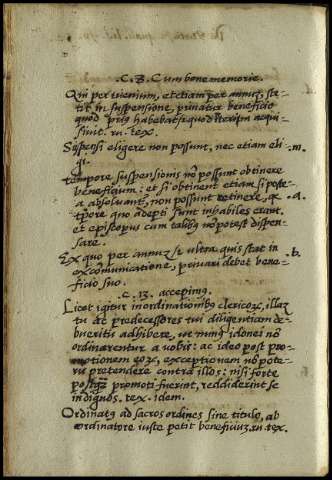 .C. 8. Cum bone memorie.
Qui per uienium, et etiam per annuʒ, ste-
tit in suspensione, priuatur beneficio
quod priꝰ habebat et quod iterum acqui-
siuit. ru. tex.
Suspensi eligere non possunt, nec etiam eli .m.
gi.
tempore suspensionis nō possunt obtinere
beneficium: et si obtinent etiam si poste-
a absoluant, non possunt retinere, q .a.
tpore quo adepti sunt inhabiles erant.
et episcopus cum talibꝰ nō potest dispen-
sare.
Ex quo per annuʒ et ultra quis stat in .b.
excōmunicatione, priuari debet bene-
ficio suo.
.C. 13. accepimꝰ.
Licet igitur in ordinationibꝰ clericoꝝ, illaʒ
tu ac predecessores tui diligentiam de-
bueritis adhibere, ut minꝰ idonei nō
ordinarentur a uobis: ac ideo post pro-
motionem eoꝝ, exceptionem nō pote-
ris pretendere contra illos: nisi forte
postqʒ promoti fuerint, reddiderint se
indignos. tex. idem.
Ordinatꝰ ad sacros ordines sine titulo, ab
ordinatore iuste petit beneficiuʒ. ru. tex.